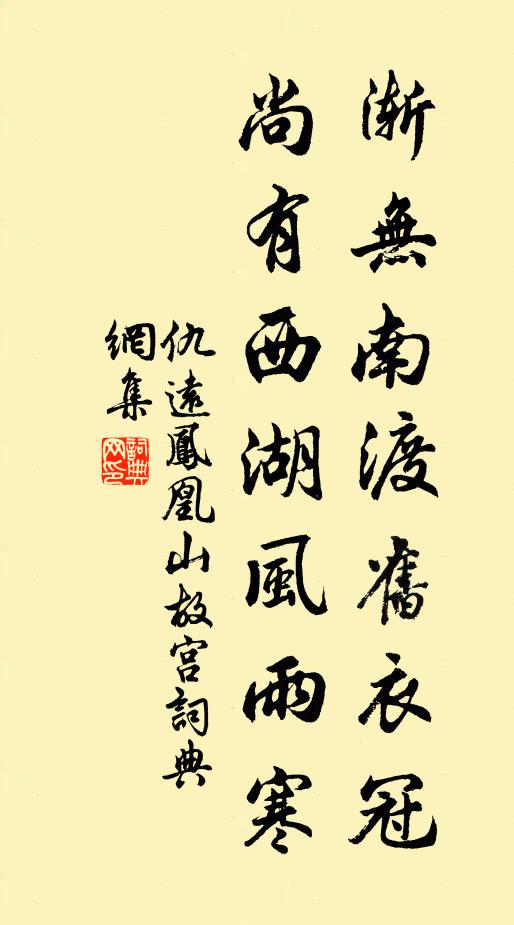 漸無南渡舊衣冠
尚有西湖風雨寒
仇遠鳳凰山故宮詞典
網集
詞典
网印